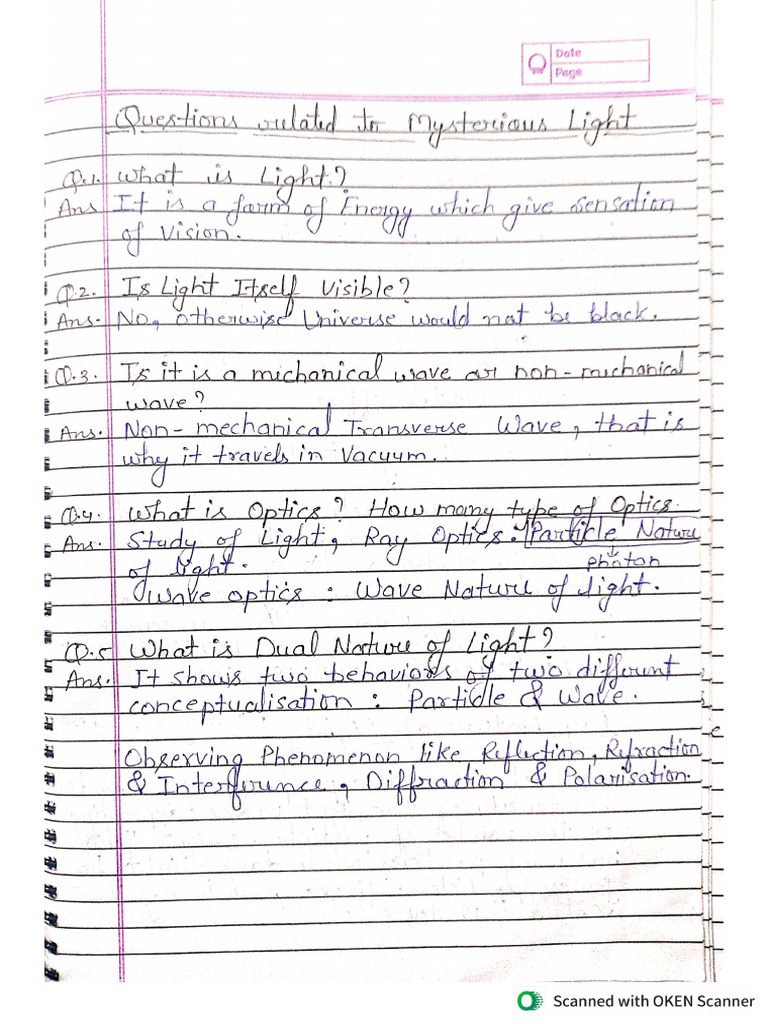 Date
Page
Questions related to Mysterious Light
Q.1. What is Light?
Ans It is a form of Energy which give sensation
of Vision.
Q.2. Is Light Itself Visible?
Ans- No, otherwise Universe would not be black.
Q.3. Is it is a michanical wave or non-michanical
wave?
Ans. Non-mechanical Transverse Wave, that is
why it travels in Vacuum.
Q.4. What is Optics? How many type of Optics.
Ans. Study of Light, Ray Optics: Particle Nature
photon
of light.
Wave optics : Wave Nature of light.
Q.5 What is Dual Nature of Light?
Ans. It shows two behaviors of two different
conceptualisation : Particle & Wave.
e
Observing Phenomenon like Reflection, Refraction
& Interference, Diffraction & Polarisation.
Scanned with OKEN Scanner